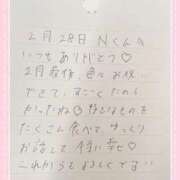 2月28日 Nくんへ
いつもありがとう♡
2月前作、色々お祝い
できて、すごくたのし
かったね♡ 好きなものを
たくさん食べて、ゆっくり
お話して 本当に幸せ♡
これからもよろしくでる